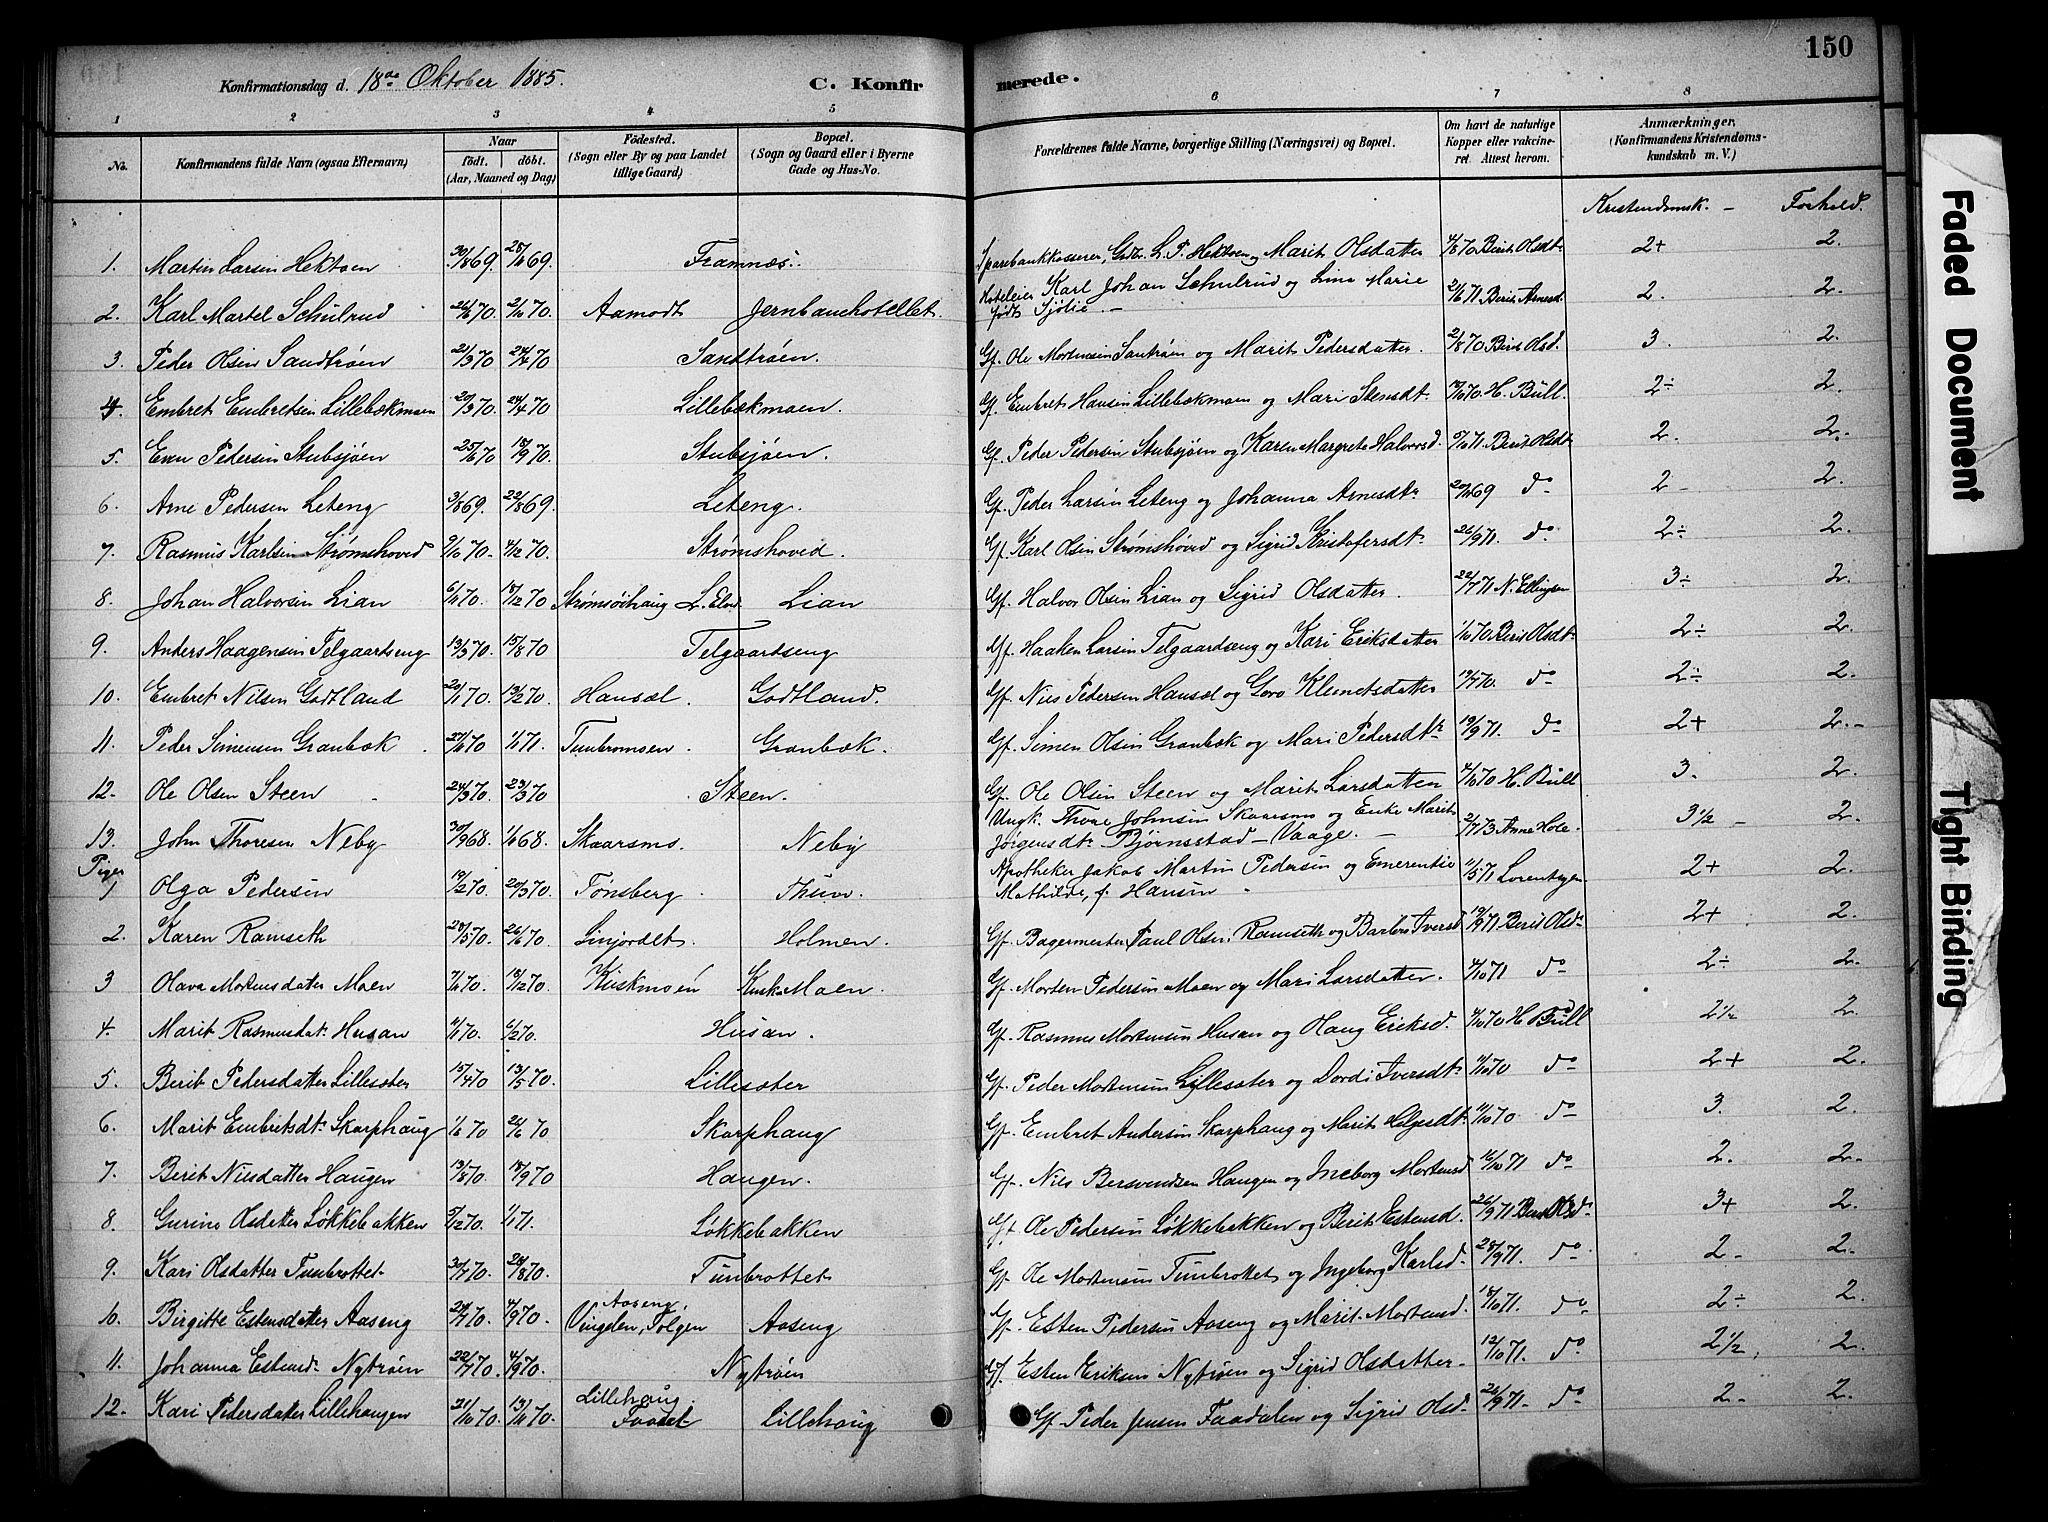 150
Konfirmationsdag d. 18de Oktober 1885. C. Konfirmerede.
1 2 3 4 5 6 7 8
No. Konfirmandens fulde Navn (ogsaa Efternavn) Naar födt. döbt. (Aar, Maaned og Dag) Födested. (Sogn eller By og paa Landet tillige Gaard) Bopæl. (Sogn og Gaard eller i Byerne Gade og Hus-No. Forældrenes fulde Navne, borgerlige Stilling (Næringsvei) og Bopæl. Om havt de naturlige Kopper eller vakcineret. Attest herom. Anmærkninger. (Konfirmandens Kristendomskundskab m. V.)
Kristendomsk. – Forhold.
1. Martin Larsen Hektoen 30/8 69. Framnæs. Sparebankkasserer, Gdbr. L. P. Hektoen og Marit Olsdatter 4/8 70 Berit Olsdt. 2+ 2.
2. Karl Martel Schulrud 2/10 70 Aamodt Jernbanehotellet. Hoteleier Karl Johan Schulrud og Lina Marie født Sjölie. – 2/6 71 Berit Arnesd. 2. 2.
3. Peder Olsen Sandtrøen 21/3 70 24/4 70 Sandtrøen. Gf. Ole Mortensen Santrøen og Marit Pedersdatter. 2/8 70 Berit Olsd. 3. 2.
4. Embret Embretsen Lillebækmoen 20/3 70. 24/4 70 Lillebækmoen. Gf. Embret Hansen Lillebækmoen og Mari Stensdt. H. Bull 2÷ 2.
5. Even Pedersen Stubsjøen 25/6 70 18/9 70. Stubsjøen. Gf. Peder Pedersen Stubsjøen og Karen Margrete Halvorsd. Berit Olsdt. 2. 2.
6. Arne Pedersen Leteng 3/8 69. 22/8 69. Leteng. Gf. Peder Larsen Leteng og Johanna Arnesdt. do 2 – 2.
7. Rasmus Karlsen Strømshoved 4/12 70. Strømshoved. Gf. Karl Olsen Strømshoved og Sigrid Kristofersdt. 26/9 71. do 2÷ 2.
8. Johan Halvorsen Lian 6/11 70. 18/12 70 Strømsöihaug L. Elvd. Lian Gf. Halvor Olsen Lian og Sigrid Olsdatter. 22/7 71 N. Ellingsen 3÷ 2.
9. Anders Haagensen Telgaardseng 13/5 70. 15/8 70 Telgaardseng Gf. Haaken Larsen Telgaardseng og Kari Eriksdatter 1/10 70 Berit Olsdt. 2÷ 2.
10. Embret Nilsen Godtland 20/1 70 13/2 70. Hansæl. Godtland. Gf. Nils Pedersen Hansæl og Goro Klemetsdatter do 2÷ 2.
11. Peder Simensen Granbæk 1/1 71. Tunbromsen. Granbæk. Gf. Simen Olsen Granbæk og Mari Pedersdtr 19/9 71. do 2+ 2.
12. Ole Olsen Steen 24/3 70. Steen. Gf. Ole Olsen Steen og Marit Larsdatter 4/10 70 H. Bull 3. 2.
13. John Thoresen Neby 30/9 68. Skaarsmo. Neby Ungk. Thore Johnsen Skaarsmo og Enke Marit Jørgensdt. Bjørnsstad – Vaage. – 2/7 73 Anne Hoie. 3½ – 2.
Piger
1 Olga Pedersen 19/2 70. 20/3 70. Tønsberg. Thun. Apotheker Jakob Martin Pedersen og Emerentie Mathilde, f. Hansen 11/5 71 Lorentzen 2+ 2.
2. Karen Ramseth 28/5 70. 26/6 70. Linjordet. Holmen. Gf. Bagermester Paul Olsen Ramseth og Barbro Iversd 19/9 71 Berit Olsd. 2+ 2.
3 Olava Mortensdatter Moen 18/12 70. Kuskmoen Kusk-Moen. Gf. Morten Pedersen Moen og Mari Larsdatter. 4/10 71 do 2÷ 2.
4. Marit Rasmusdt. Husan 6/2 70. Husan. Gf. Rasmus Mortensen Husan og Olaug Eriksd. 4/10 70 H. Bull 2½ 2.
5. Berit Pedersdatter Lillesæter 15/4 70 13/5 70. Lillesæter Gf. Peder Mortensen Lillesæter og Dordi Iversdt. 11/10 70 do 2+ 2.
6. Marit Embretsdt. Skarphaug 1/6 70 26/6 70 Skarphaug Gf. Embret Andersen Skarphaug og Marit Helgesdt. 11/10 70 do 3. 2.
7. Berit Nilsdatter Haugen 13/8 70. 18/9 70 Haugen. Gf. Nils Bersvendsen Haugen og Ingeborg Mortensd 16/10 71 do 2. 2.
8. Gurine Olsdatter Løkkebakken 1/1 71. Løkkebakken Gf. Ole Pedersen Løkkebakken og Berit Estensd. 26/9 71 Berit Olsd. 3+ 2.
9. Kari Olsdatter Tunbrottet 28/8 70. Tunbrottet Gf. Ole Mortensen Tunbrottet og Ingeborg Karlsd. 28/9 71. do. 2 – 2.
10. Birgitte Estensdatter Aaseng 4/9 70. Aaseng, Vingelen, Tolgen Aaseng Gf. Esten Pedersen Aaseng og Marit Mortensd 18/10 71. do 2÷ 2.
11. Johanna Estensd. Nytrøen 22/7 70. 4/9 70. Nytrøen Gf. Esten Eriksen Nytrøen og Sigrid Olsdatter 12/10 71. do 2½. 2.
12. Kari Pedersdatter Lillehaugen 21/10 70. 13/11 70. Lillehaug Faadal Lillehaug Gf. Peder Jensen Faadalen og Sigrid Olsd. 26/9 71. do 2 – 2.
Faded Document
Tight Binding